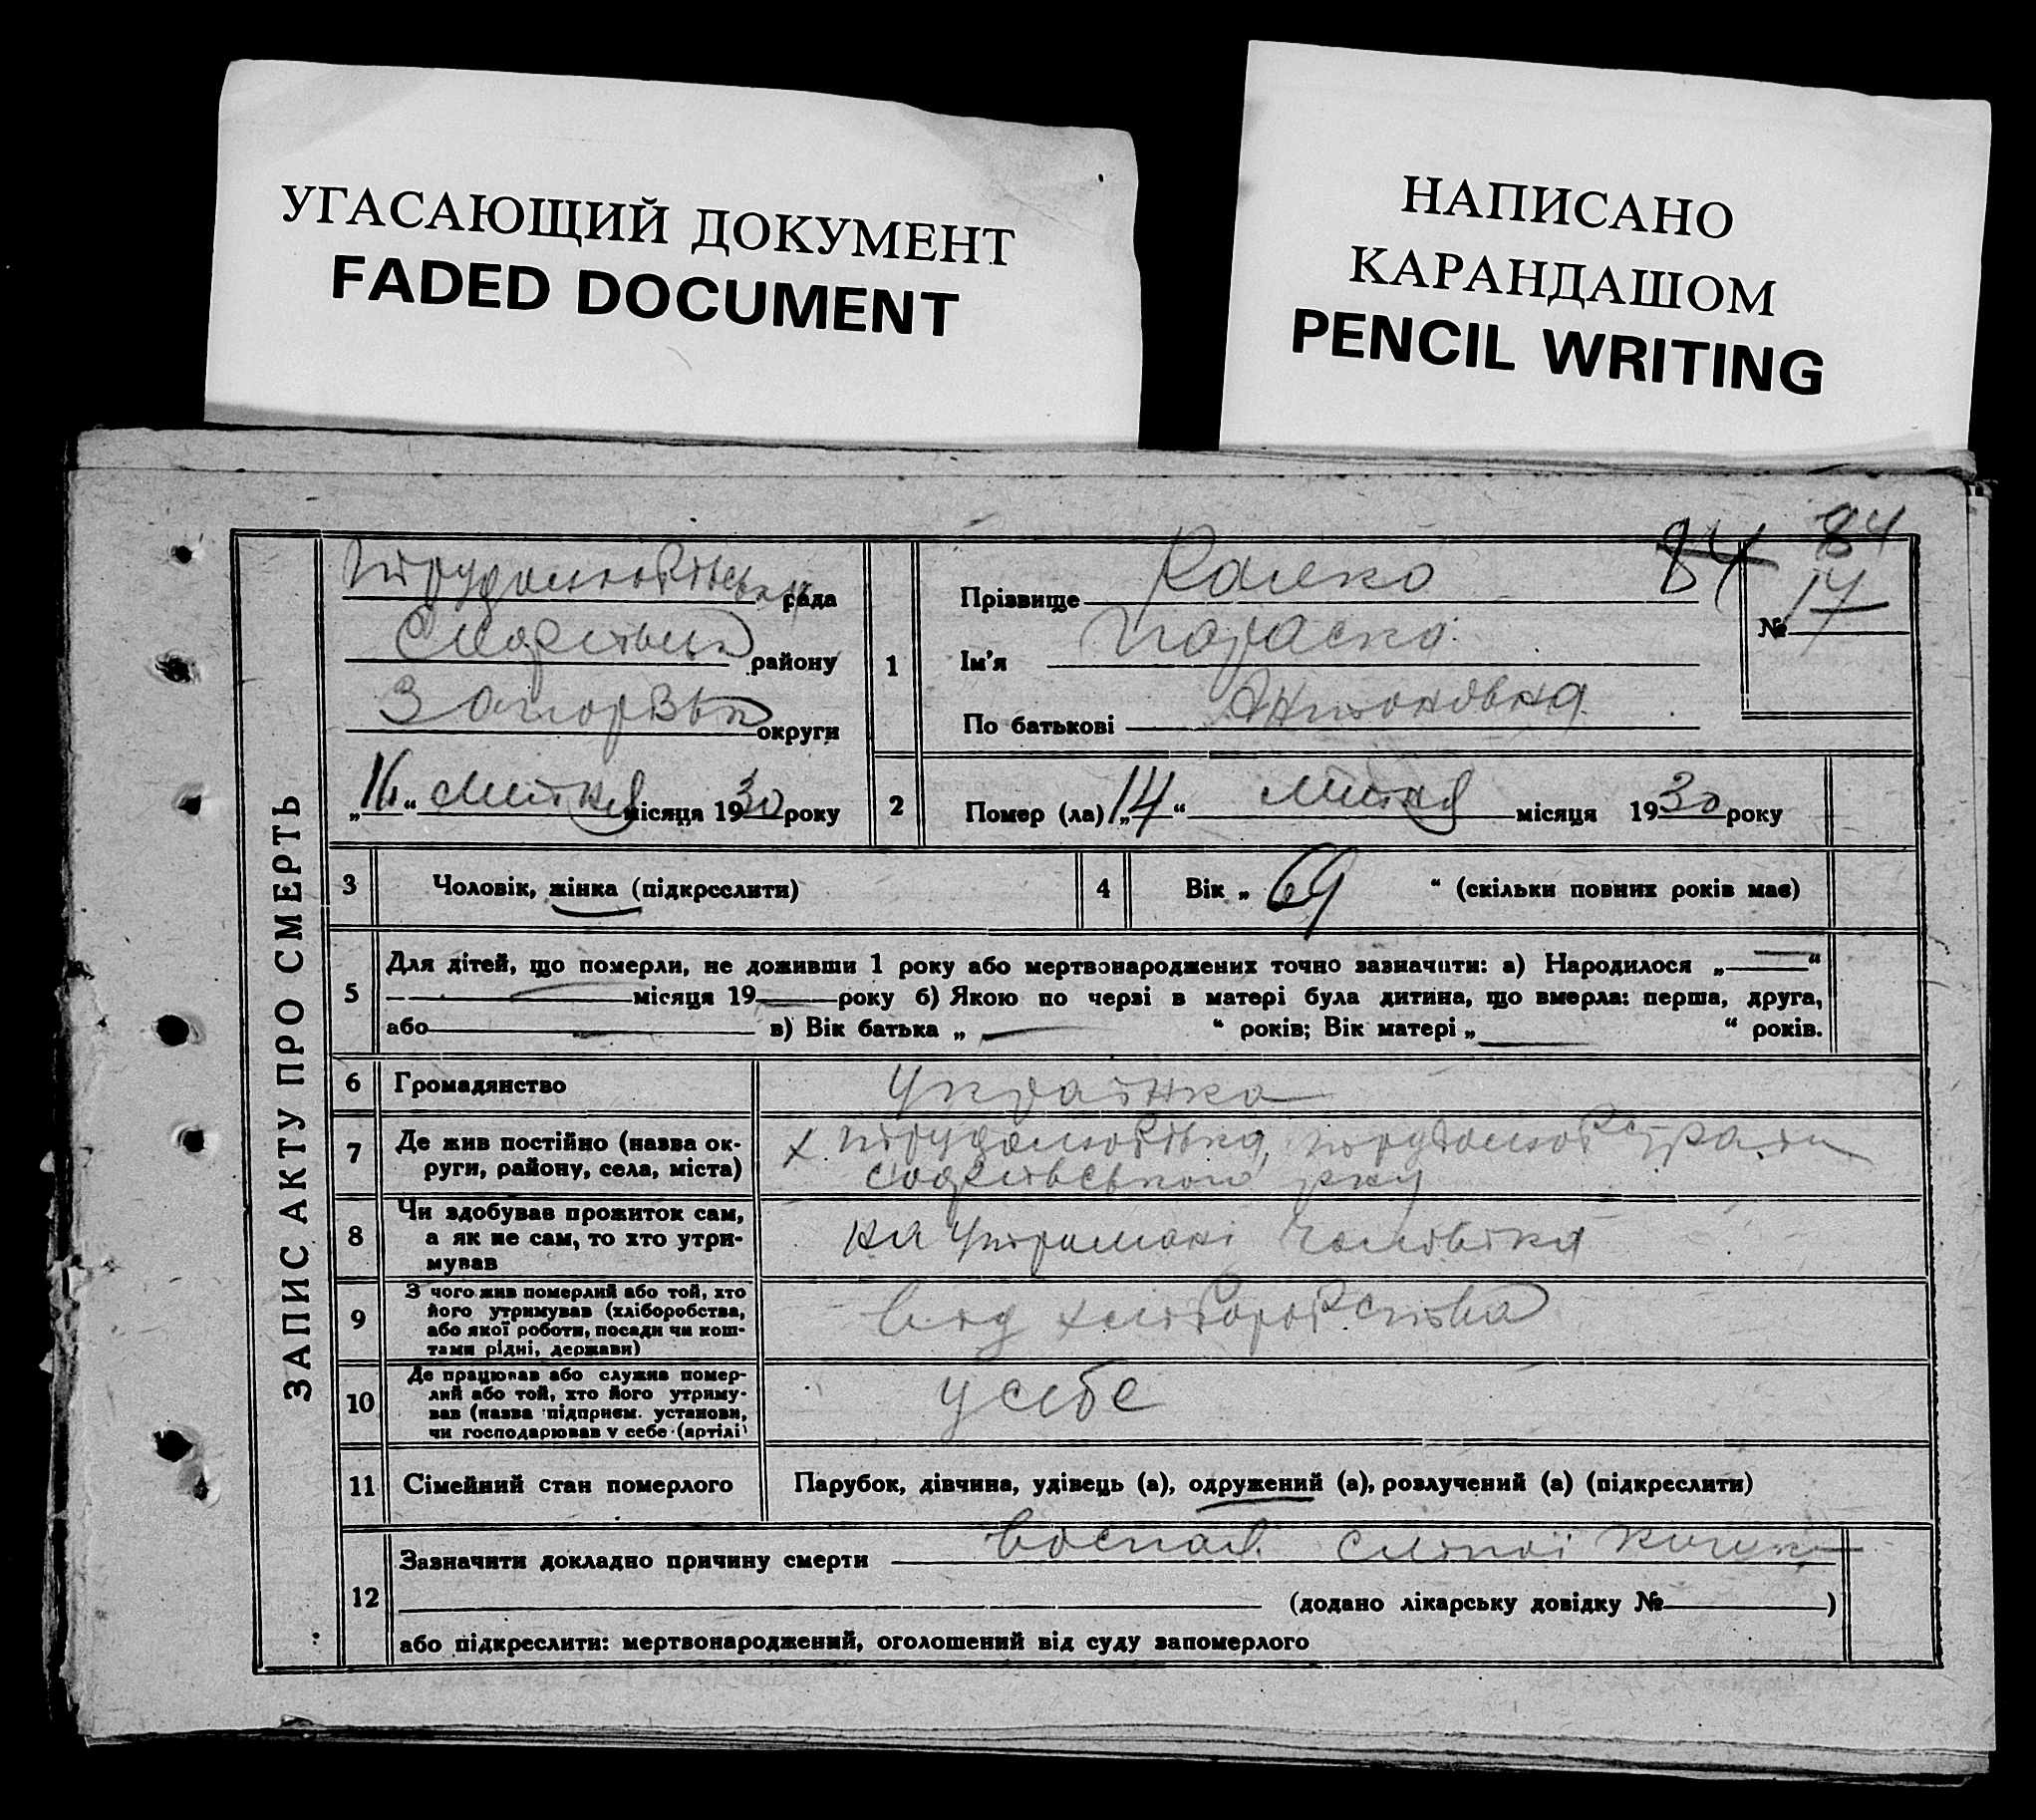 УГАСАЮЩИЙ ДОКУМЕНТ
FADED DOCUMENT
НАПИСАНО
КАРАНДАШОМ
PENCIL WRITING
84
ЗАПИС АКТУ ПРО СМЕРТЬ
рада
району
округи
„16“ Лютня місяця 1930 року
1
Прізвище Калко 84
Ім'я Параска
По батькові Антоновна
№ 17
2
Помер (ла) „14“ Лютня місяця 1930 року
3 Чоловік, жінка (підкреслити)
4 Вік „69“ (скільки повних років має)
5 Для дітей, що померли, не доживши 1 року або мертвонароджених точно зазначити: а) Народилося „—“
місяця 19 року б) Якою по черві в матері була дитина, що вмерла: перша, друга,
або в) Вік батька „ “ років; Вік матері „ “ років.
6 Громадянство Українка
7 Де жив постійно (назва ок-
руги, району, села, міста)
х. Трудолюбівка,
8 Чи здобував прожиток сам,
а як не сам, то хто утри-
мував
на утримані чоловіка
9 З чого жив померлий або той, хто
його утримував (хліборобства,
або якої роботи, посади чи кош-
тами рідні, держави)
від хліборобства
10 Де працював або служив помер-
лий або той, хто його утриму-
вав (назва підприєм. установи,
чи господарював у себе (артілі)
у себе
11 Сімейний стан померлого Парубок, дівчина, удівець (а), одружений (а), розлучений (а) (підкреслити)
12 Зазначити докладно причину смерти воспал. сліпої кишки
(додано лікарську довідку № )
або підкреслити: мертвонароджений, оголошений від суду запомерлого